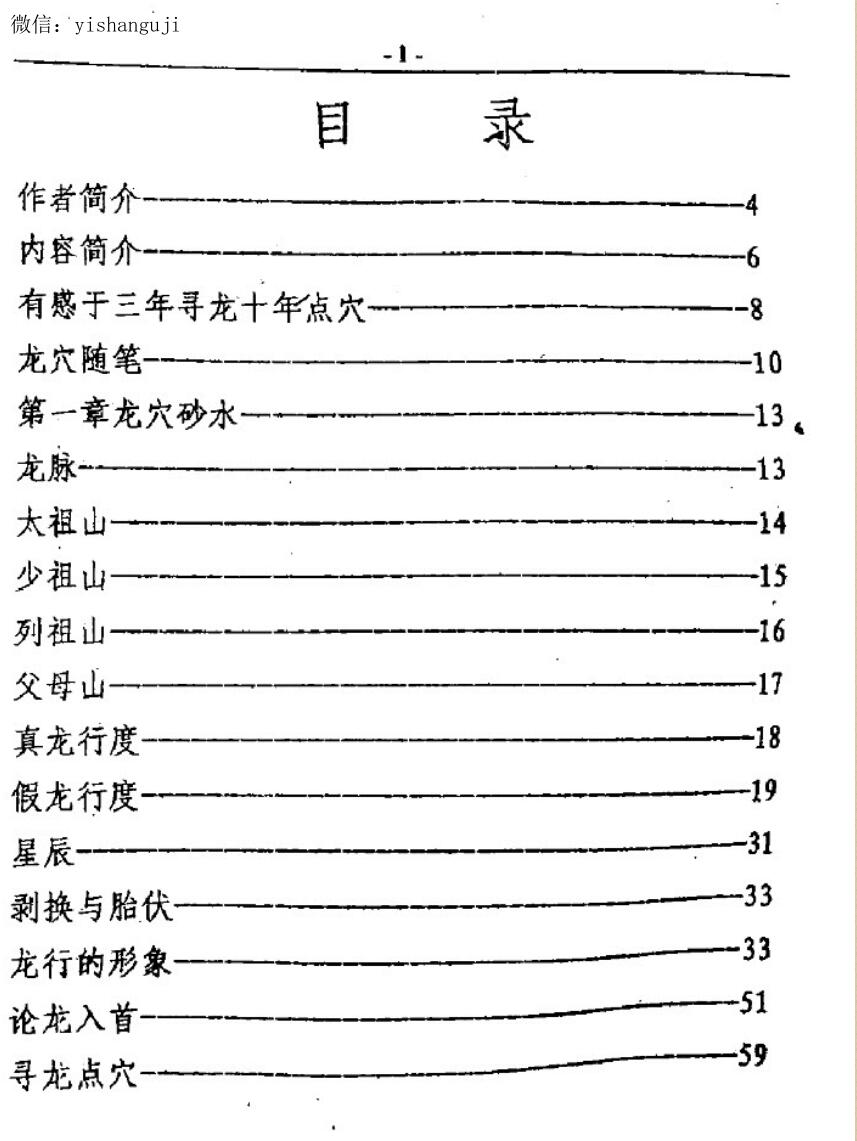 微信：yishanguji
-1-
目 录
作者简介————4
内容简介————6
有感于三年寻龙十年点穴————8
龙穴随笔————10
第一章龙穴砂水————13
龙脉————13
太祖山————14
少祖山————15
列祖山————16
父母山————17
真龙行度————18
假龙行度————19
星辰————31
剥换与胎伏————33
龙行的形象————33
论龙入首————51
寻龙点穴————59